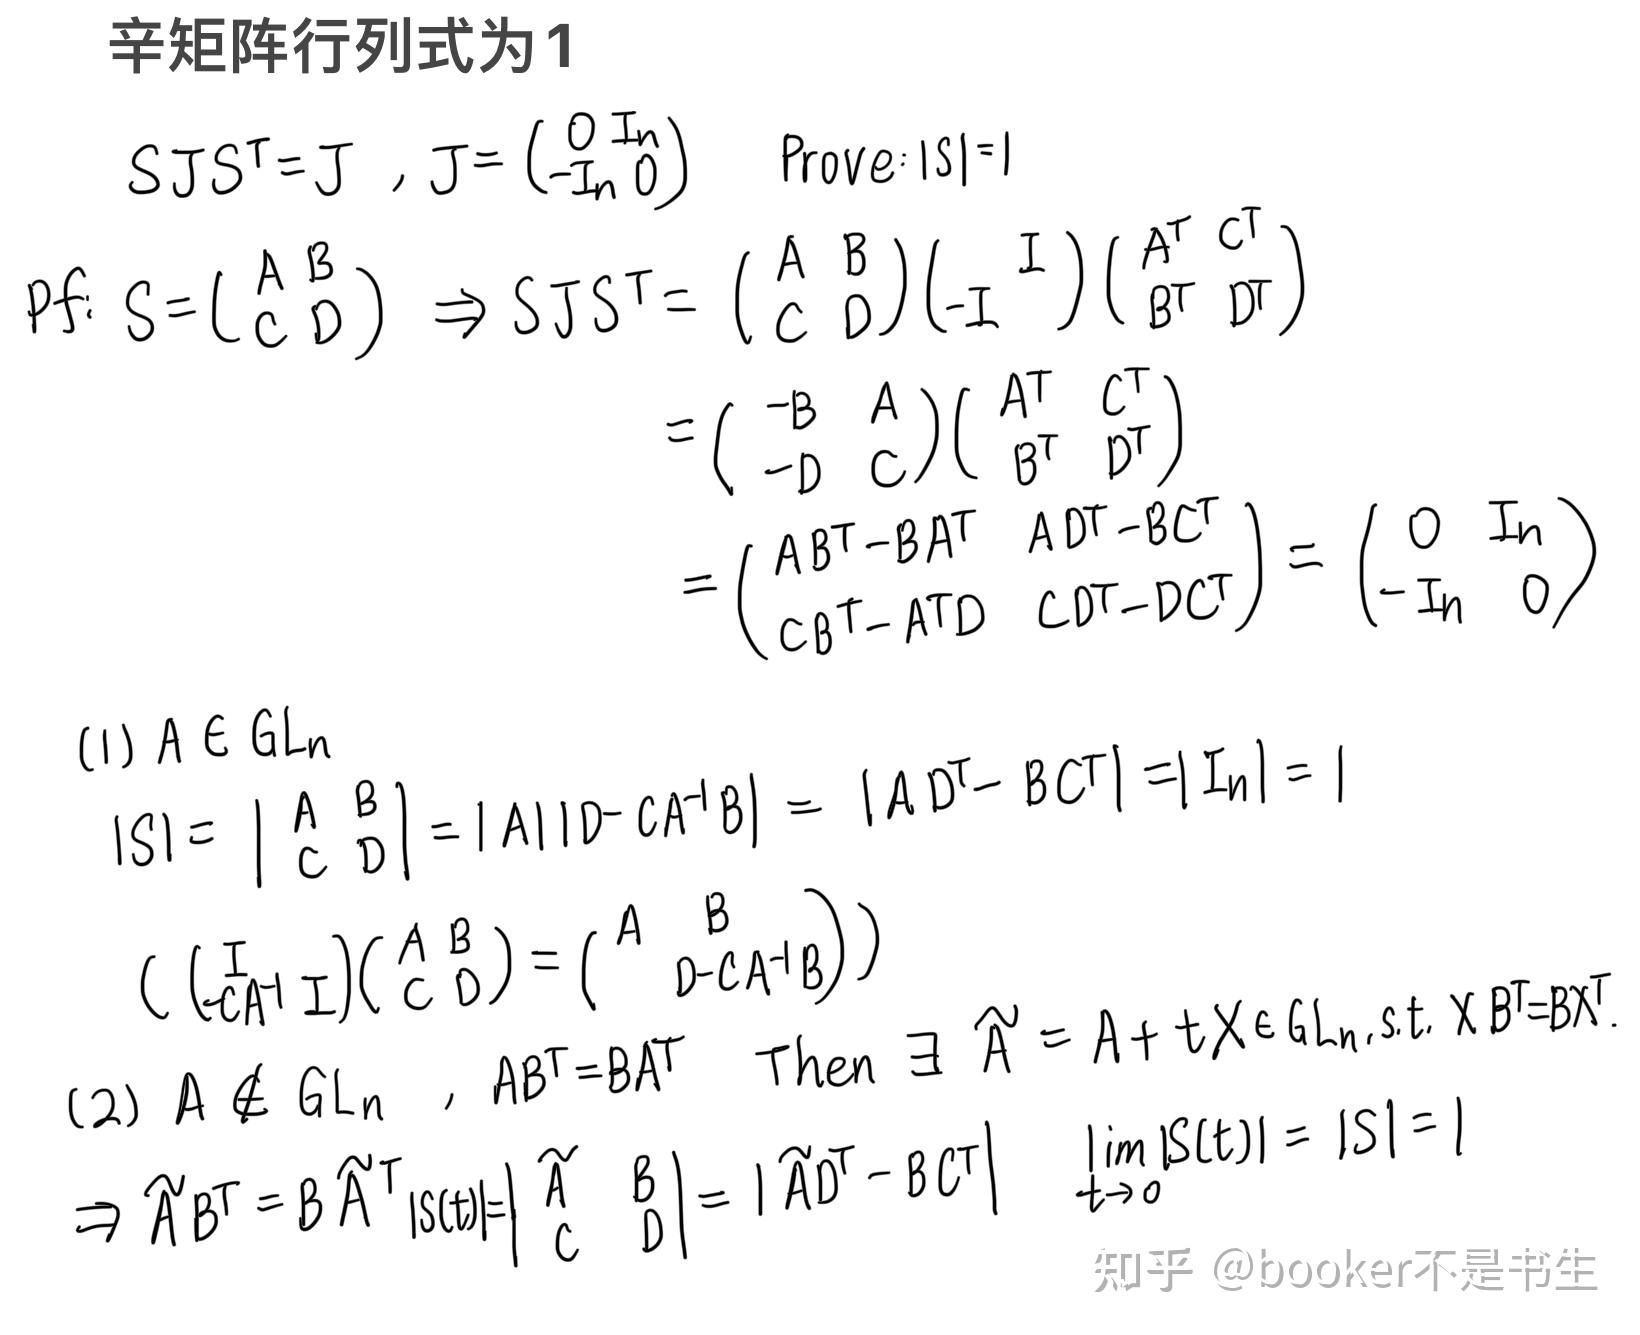 辛矩阵行列式为1
SJSᵀ=J , J=(0 In -In 0) Prove: |S|=1
Pf: S=(A B C D) ⇒ SJSᵀ= (A B C D)(I -I)(Aᵀ Cᵀ Bᵀ Dᵀ)
=(-B A -D C)(Aᵀ Cᵀ Bᵀ Dᵀ)
=(ABᵀ-BAᵀ ADᵀ-BCᵀ CBᵀ-AᵀD CDᵀ-DCᵀ) = (0 In -In 0)
(1) A ∈ GLn
|S| = |A B C D| = |A||D-CA⁻¹B| = |ADᵀ-BCᵀ| = |In| = 1
((I -CA⁻¹ I)(A B C D) = (A B D-CA⁻¹B))
(2) A ∉ GLn , ABᵀ=BAᵀ Then ∃ Ã = A + tX ∈ GLn, s.t. XBᵀ=BXᵀ.
⇒ ÃBᵀ = BÃᵀ |S(t)|=|Ã B C D| = |ÃDᵀ - BCᵀ| lim t→0 |S(t)| = |S| = 1
知乎 @booker不是书生